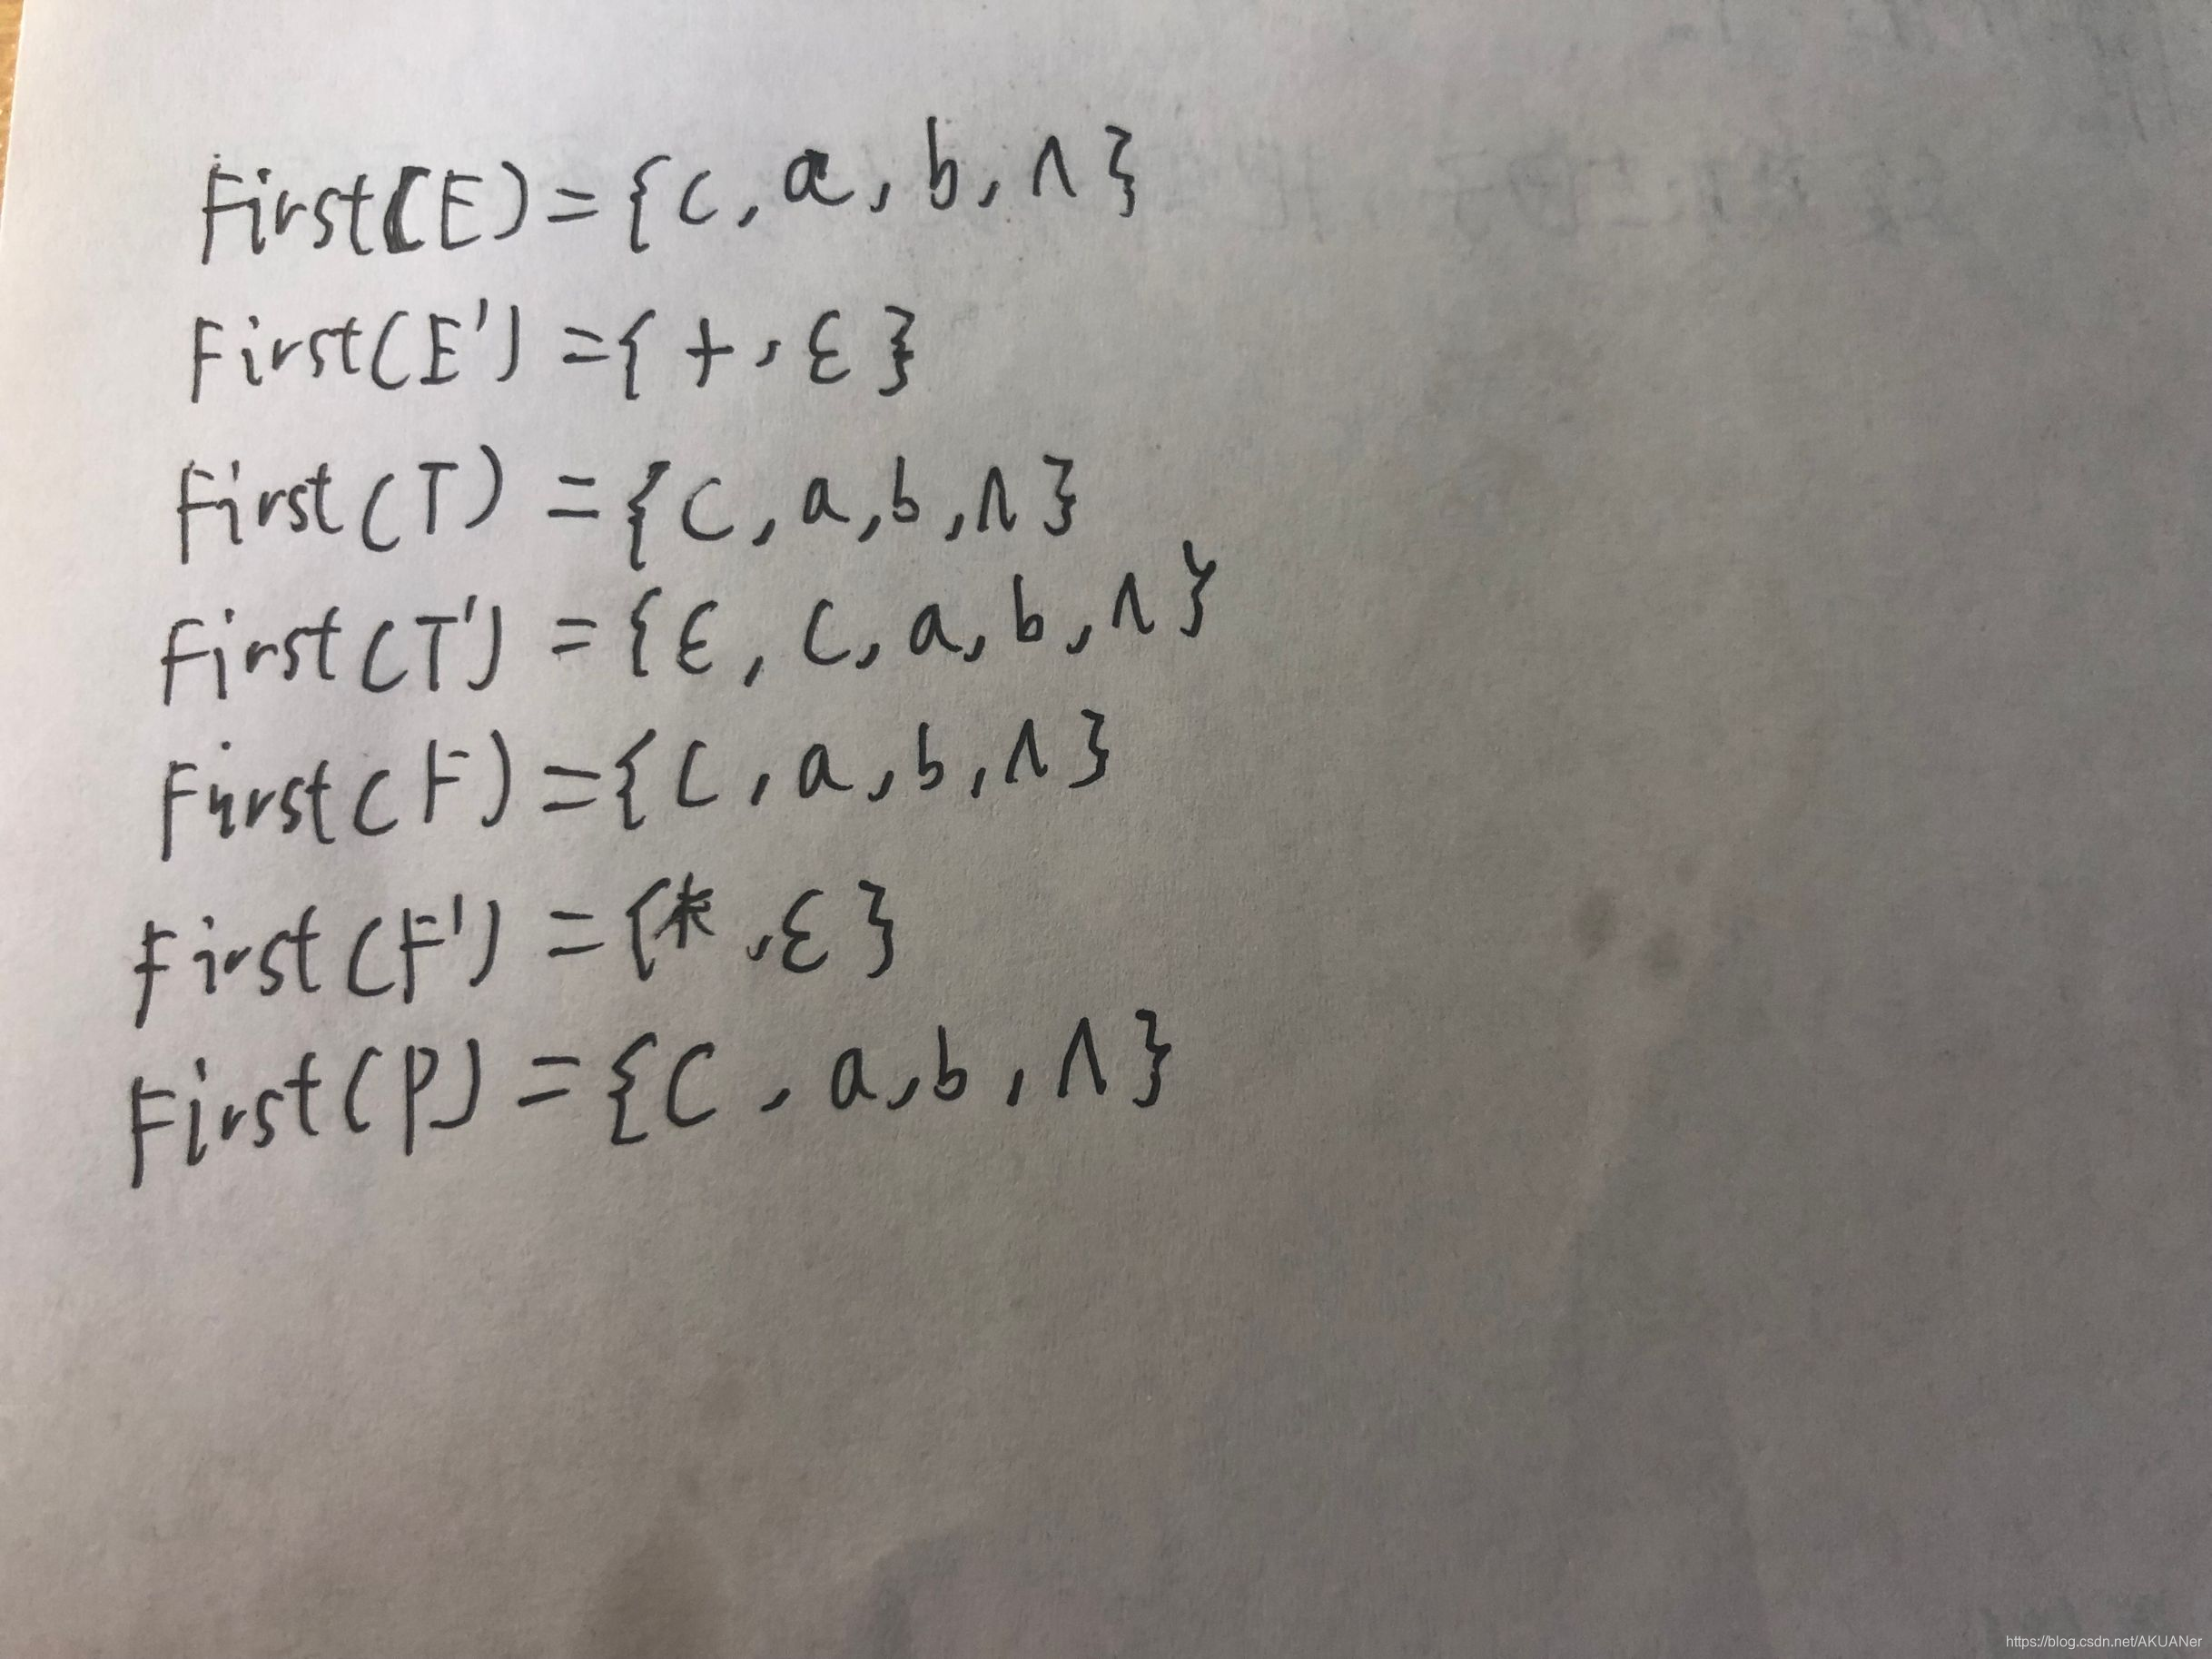 First(E)={(,a,b,∧}
First(E')={+,ε}
First(T)={(,a,b,∧}
First(T')={ε,(,a,b,∧}
First(F)={(,a,b,∧}
First(F')={*,ε}
First(P)={(,a,b,∧}
https://blog.csdn.net/AKUANer